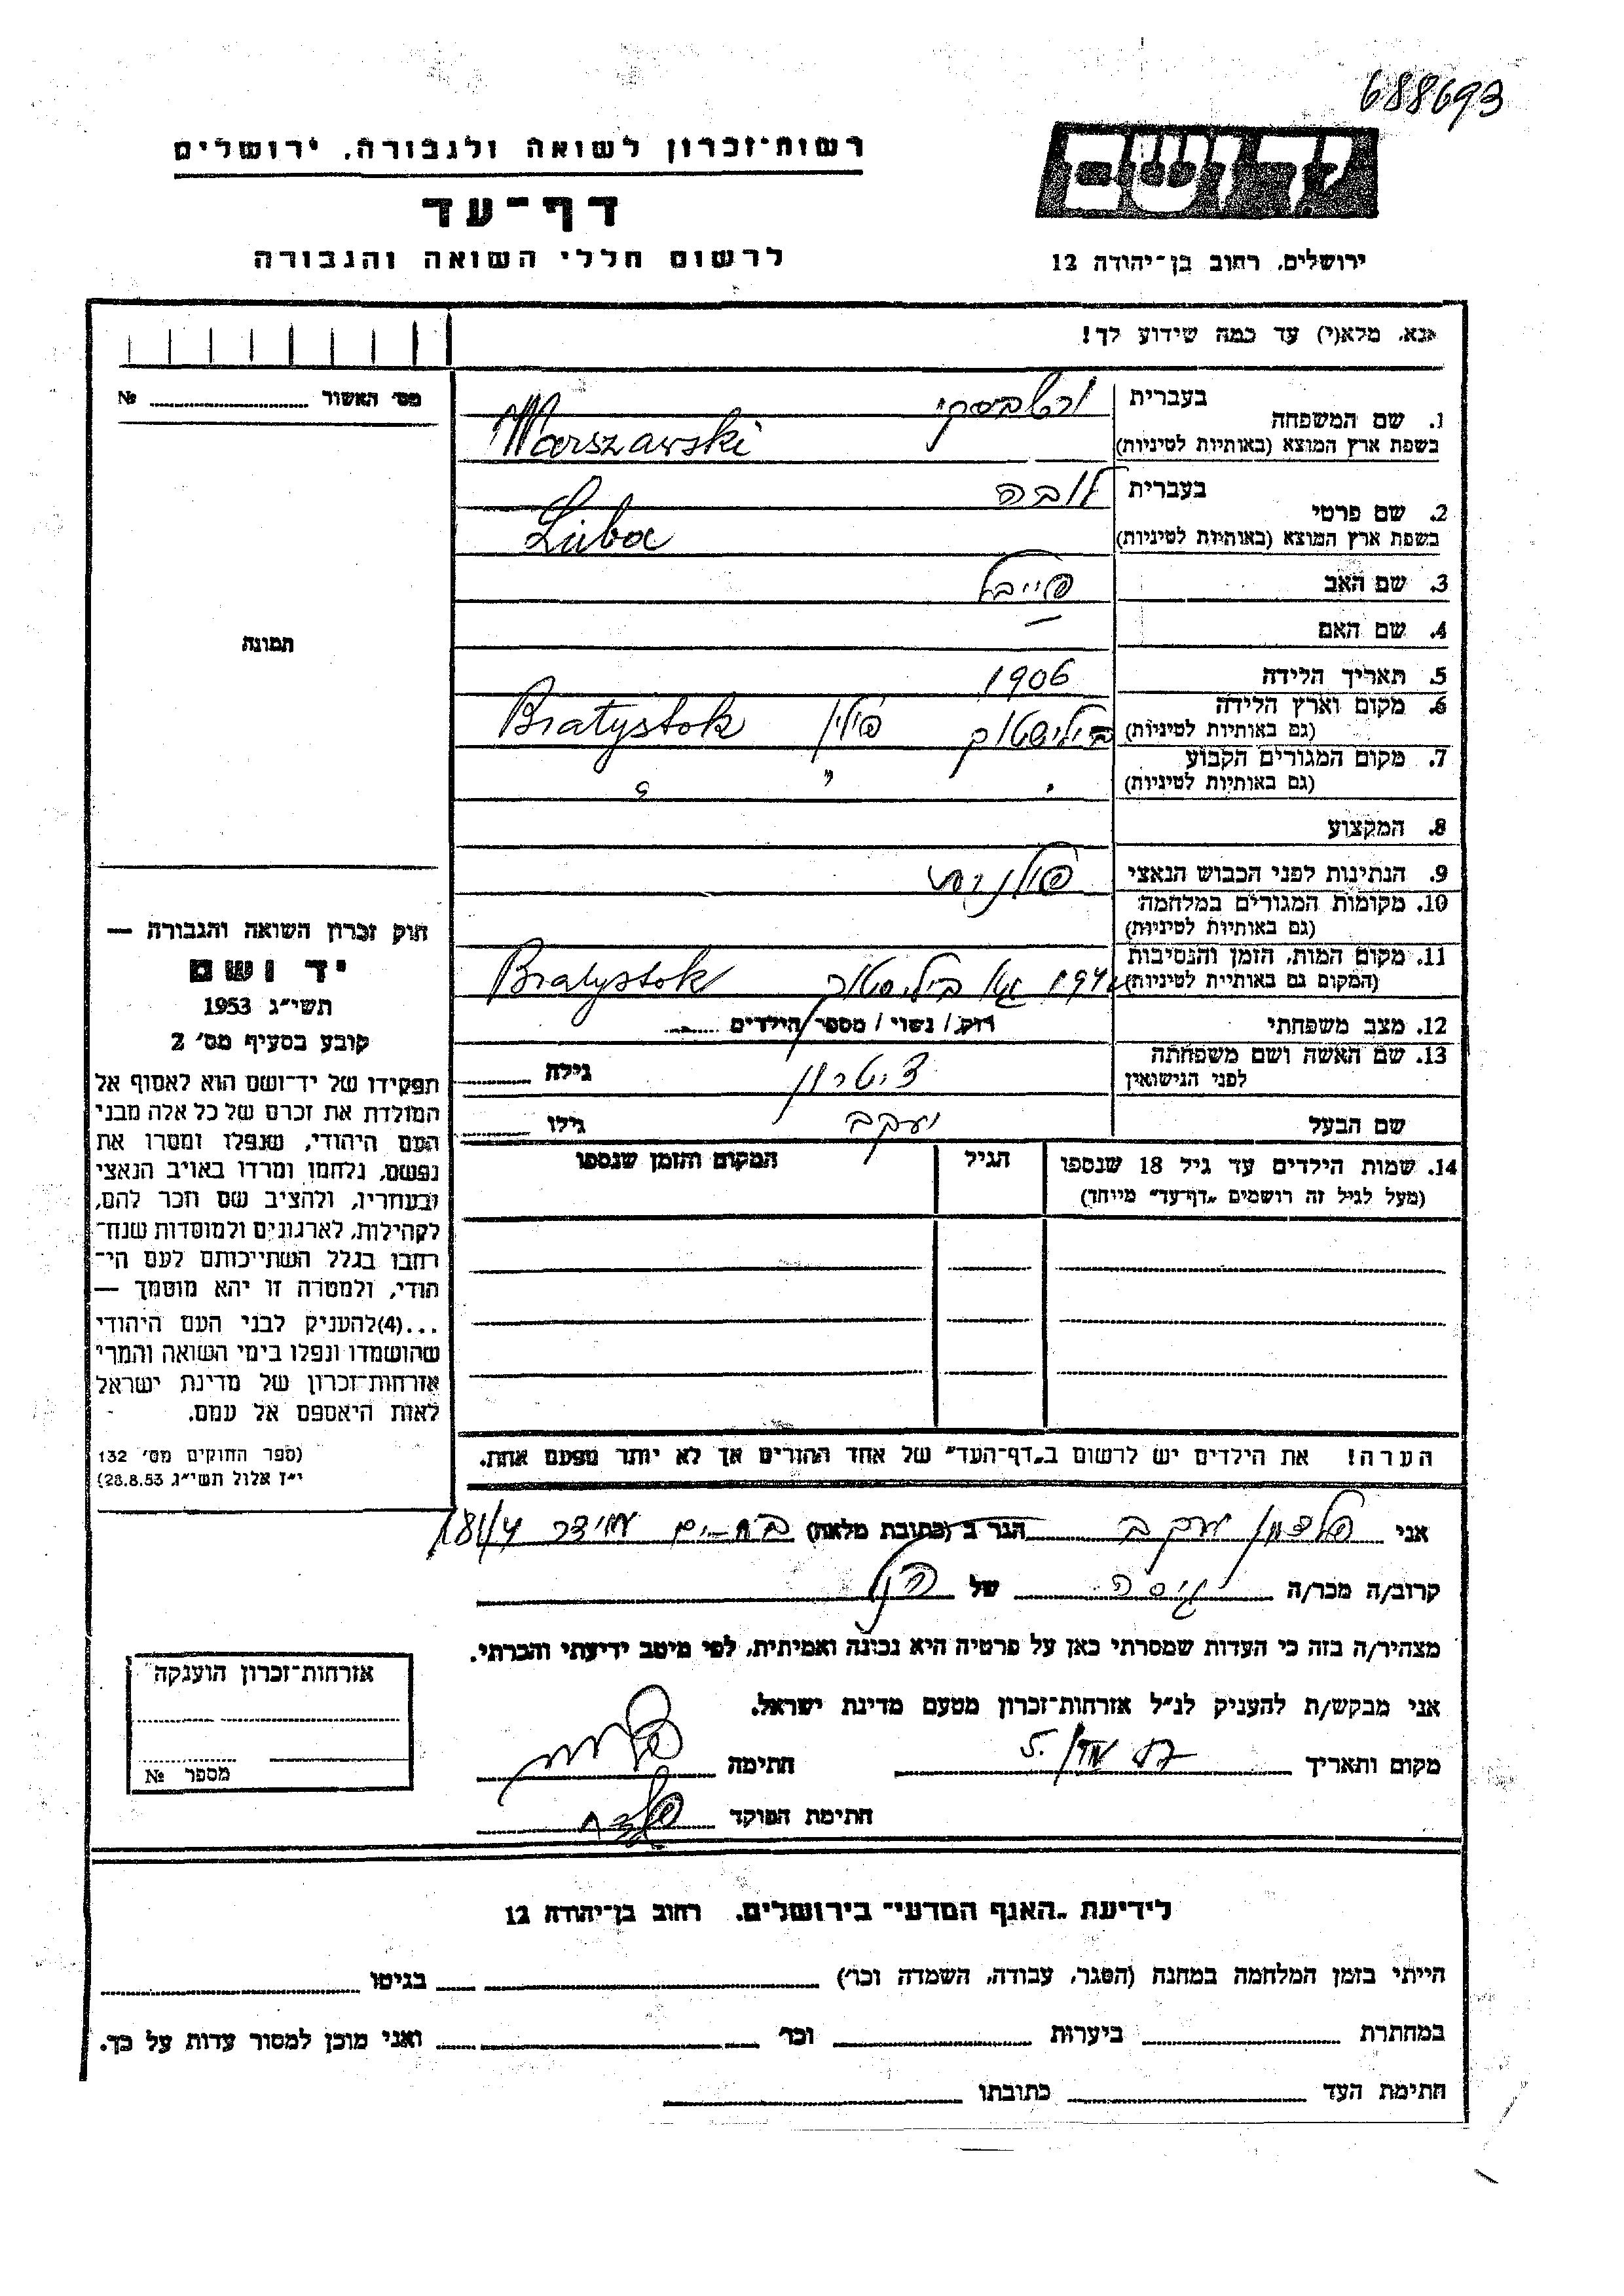 688693
יד ושם
רשות־זכרון לשואה ולגבורה, ירושלים
דף־עד
לרשום חללי השואה והגבורה
ירושלים, רחוב בן־יהודה 12
נא, מלא(י) עד כמה שידוע לך!
מס׳ האשור № 
1. שם המשפחה
בעברית
בשפת ארץ המוצא (באותיות לטיניות)
Warszawski
2. שם פרטי
בעברית לובה
בשפת ארץ המוצא (באותיות לטיניות) Luba
3. שם האב פייבל
4. שם האם —
5. תאריך הלידה 1906
6. מקום וארץ הלידה
(גם באותיות לטיניות) ביליסטוק פולין Bratystok
7. מקום המגורים הקבוע
(גם באותיות לטיניות) " " "
8. המקצוע
9. הנתינות לפני הכבוש הנאצי פולנית
10. מקומות המגורים במלחמה
(גם באותיות לטיניות)
11. מקום המות, הזמן והנסיבות
(המקום גם באותיות לטיניות) ביליסטוק Bratystok
12. מצב משפחתי רווק / נשוי / מספר הילדים
13. שם האשה ושם משפחתה
לפני הנישואין ציטרון גילה
שם הבעל יעקב גילו
14. שמות הילדים עד גיל 18 שנספו הגיל המקום והזמן שנספו
(מעל לגיל זה רושמים „דף־עד” מיוחד)
הערה! את הילדים יש לרשום ב„דף־העד” של אחד ההורים אך לא יותר מפעם אחת.
תמונה
חוק זכרון השואה והגבורה —
יד ושם
תשי״ג 1953
קובע בסעיף מס׳ 2
תפקידו של יד־ושם הוא לאסוף אל
המולדת את זכרם של כל אלה מבני
העם היהודי, שנפלו ומסרו את
נפשם, נלחמו ומרדו באויב הנאצי
ובעוזריו, ולהציב שם וזכר להם,
לקהילות, לארגונים ולמוסדות שנח־
רבו בגלל השתייכותם לעם הי־
הודי, ולמטרה זו יהא מוסמך —
...(4)להעניק לבני העם היהודי
שהושמדו ונפלו בימי השואה והמרי
אזרחות־זכרון של מדינת ישראל
לאות היאספם אל עמם.
(ספר החוקים מס׳ 132
י״ז אלול תשי״ג 28.8.53)
אני פלדמן יעקב הגר ב (כתובת מלאה) 181/4
קרוב/ה מכר/ה גיסה של הנ״ל
מצהיר/ה בזה כי העדות שמסרתי כאן על פרטיה היא נכונה ואמיתית, לפי מיטב ידיעתי והכרתי.
אני מבקש/ת להעניק לנ״ל אזרחות־זכרון מטעם מדינת ישראל.
מקום ותאריך חתימה
חתימת הפוקד
אזרחות־זכרון הוענקה
מספר №
לידיעת „האגף המדעי״ בירושלים, רחוב בן־יהודה 12
הייתי בזמן המלחמה במחנה (הסגר, עבודה, השמדה וכו׳) בגיטו
במחתרת ביערות וכו׳ ואני מוכן למסור עדות על כך.
חתימת העד כתובתו